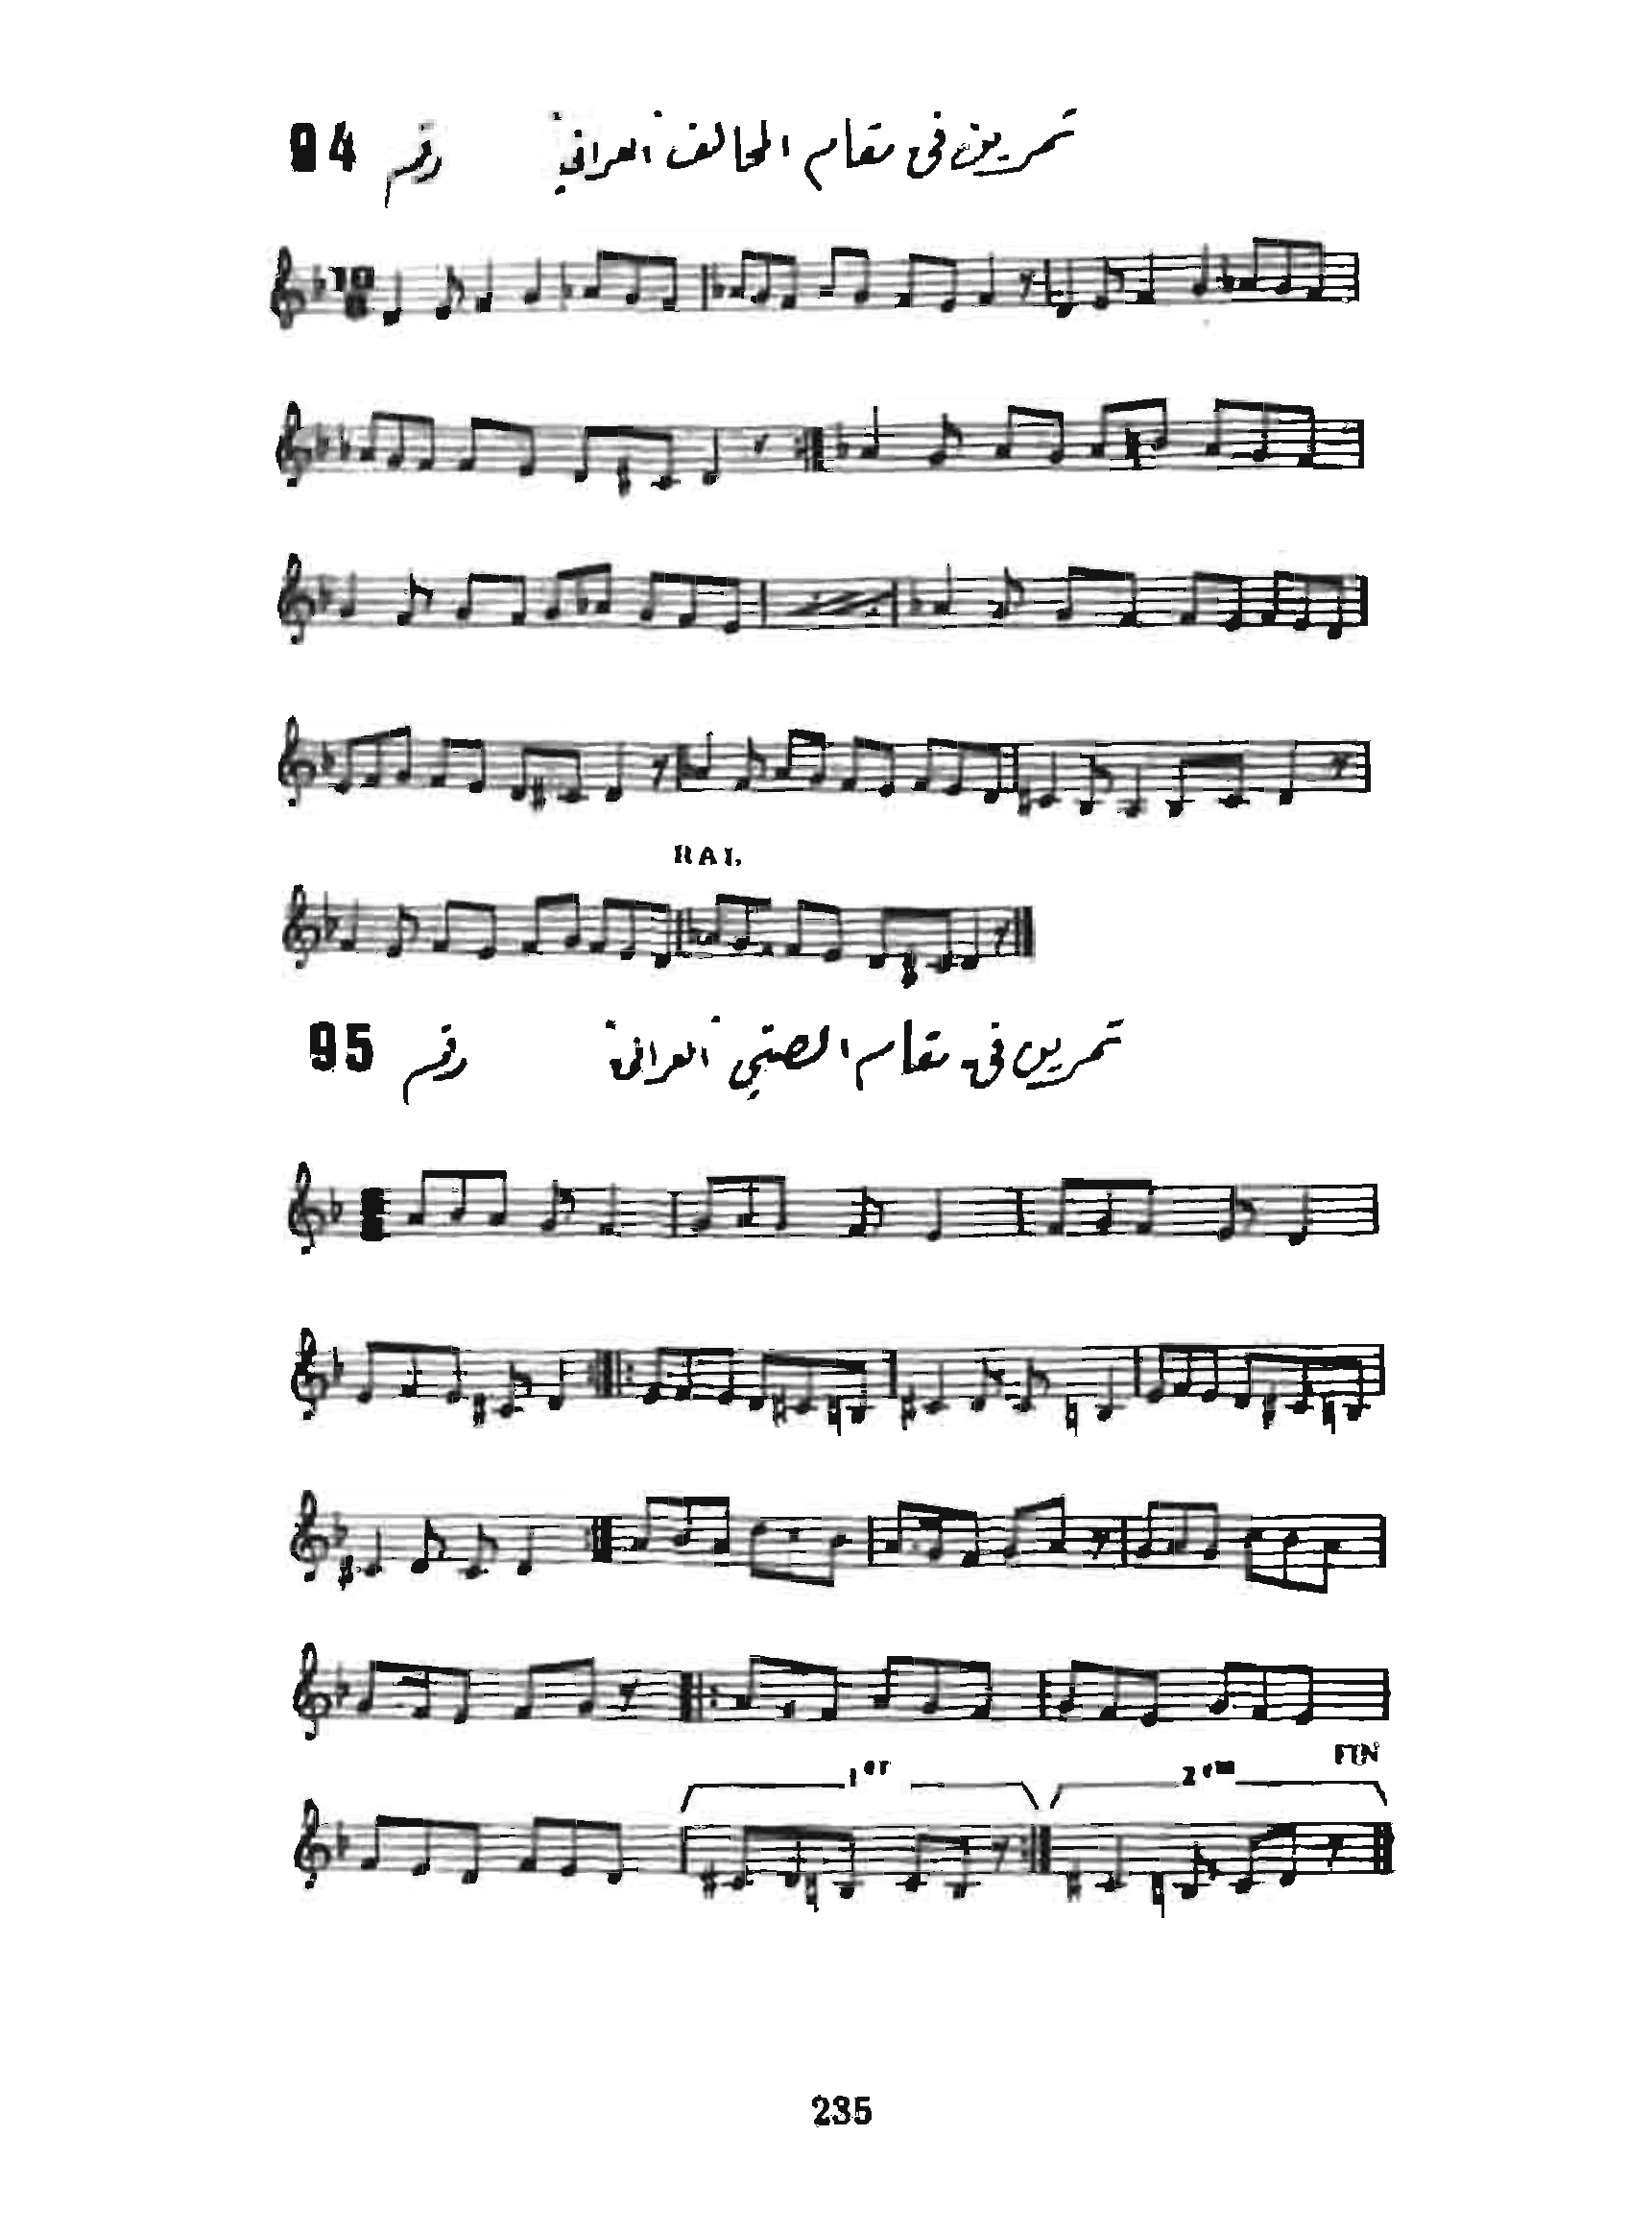 تمرين فى مقام المخالف "العراقي" رقم 94
RAL.
تمرين فى مقام الصبي "العراقى" رقم 95
FIN
1er 2em
235